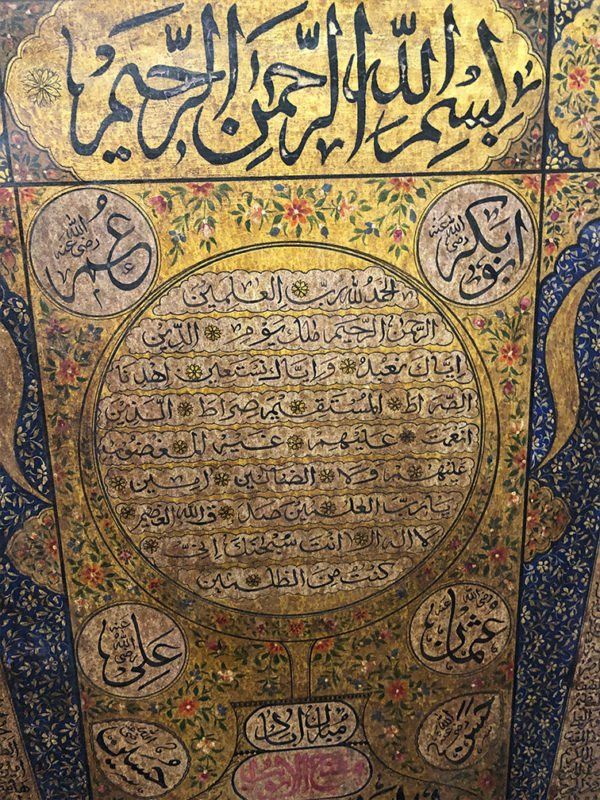 بسم الله الرحمن الرحيم
ابو بكر رضي الله عنه
عمر رضي الله عنه
الحمد لله رب العلمين
الرحمن الرحيم ملك يوم الدين
اياك نعبد واياك نستعين اهدنا
الصراط المستقيم صراط الذين
انعمت عليهم غير المغضوب
عليهم ولا الضالين امين
يا رب العلمين صدق الله العظيم
لا اله الا انت سبحنك اني
كنت من الظلمين
عثمان رضي الله عنه
علي رضي الله عنه
حسن رضي الله عنه
حسين رضي الله عنه